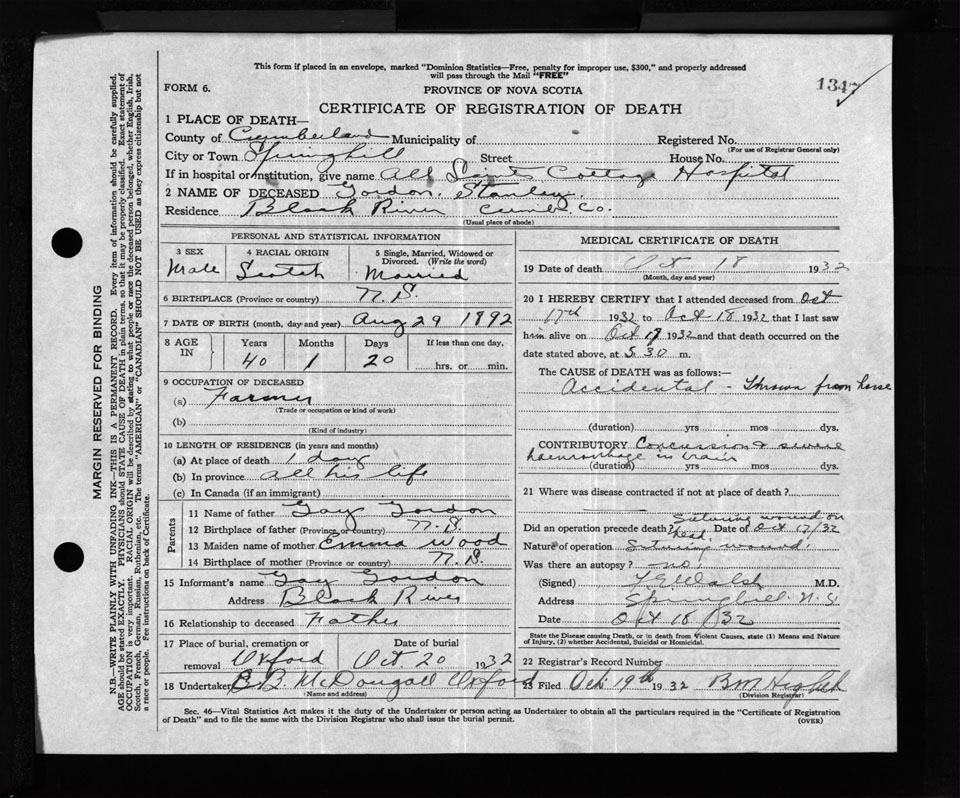 This form if placed in an envelope, marked "Dominion Statistics—Free, penalty for improper use, $300," and properly addressed
will pass through the Mail "FREE"
1347
FORM 6.
PROVINCE OF NOVA SCOTIA
CERTIFICATE OF REGISTRATION OF DEATH
1 PLACE OF DEATH—
County of Cumberland Municipality of Registered No.
(For use of Registrar General only)
City or Town Springhill Street House No.
If in hospital or institution, give name All Saints Cottage Hospital
2 NAME OF DECEASED Gordon, Stanley.
Residence Black River Cumb. Co.
(Usual place of abode)
PERSONAL AND STATISTICAL INFORMATION
3 SEX 4 RACIAL ORIGIN 5 Single, Married, Widowed or
Divorced. (Write the word)
Male Scotch Married
6 BIRTHPLACE (Province or country) N.S.
7 DATE OF BIRTH (month, day and year) Aug 29 1892
8 AGE
IN
Years Months Days If less than one day.
40 1 20 hrs. or min.
9 OCCUPATION OF DECEASED
(a) Farmer
(Trade or occupation or kind of work)
(b)
(Kind of industry)
10 LENGTH OF RESIDENCE (in years and months)
(a) At place of death 1 day
(b) In province all his life
(c) In Canada (if an immigrant)
Parents
11 Name of father Gay Gordon
12 Birthplace of father (Province or country) N.S.
13 Maiden name of mother Emma Wood
14 Birthplace of mother (Province or country) N.S.
15 Informant's name Gay Gordon
Address Black River
16 Relationship to deceased Father
17 Place of burial, cremation or Date of burial
removal Oxford Oct 20 1932
18 Undertaker B.B. McDougall Oxford
(Name and address)
MEDICAL CERTIFICATE OF DEATH
19 Date of death Oct 18 1932
(Month, day and year)
20 I HEREBY CERTIFY that I attended deceased from Oct
17th 1932 to Oct 18 1932 that I last saw
him alive on Oct 17 1932 and that death occurred on the
date stated above, at 5.30 m.
The CAUSE of DEATH was as follows:—
Accidental - Thrown from horse
(duration) yrs mos dys.
CONTRIBUTORY Concussion & severe
haemorrhage in brain
(duration) yrs mos dys.
21 Where was disease contracted if not at place of death?
Suturing wound on
Did an operation precede death? head. Date of Oct 17/32
Nature of operation Suturing wound.
Was there an autopsy? no.
(Signed) Walsh M.D.
Address Springhill N.S.
Date Oct 18/32
State the Disease causing Death, or in death from Violent Causes, state (1) Means and Nature
of Injury, (2) whether Accidental, Suicidal or Homicidal.
22 Registrar's Record Number
23 Filed Oct 19th 1932
(Division Registrar)
Sec. 46—Vital Statistics Act makes it the duty of the Undertaker or person acting as Undertaker to obtain all the particulars required in the "Certificate of Registration
of Death" and to file the same with the Division Registrar who shall issue the burial permit. (OVER)
MARGIN RESERVED FOR BINDING
N.B.—WRITE PLAINLY WITH UNFADING INK—THIS IS A PERMANENT RECORD. Every item of information should be carefully supplied.
AGE should be stated EXACTLY. PHYSICIANS should STATE CAUSE OF DEATH in plain terms, so that it may be properly classified. Exact statement of
OCCUPATION is very important. RACIAL ORIGIN will be described by stating to what people or race the deceased person belonged, whether English, Irish,
Scotch, French, German, Russian, Ruthenian, etc. The terms "AMERICAN" or "CANADIAN" SHOULD NOT BE USED as they express citizenship but not
a race or people. Fee instructions on back of Certificate.